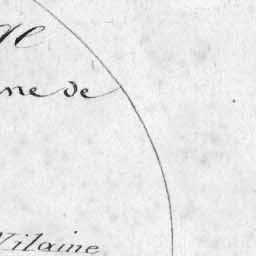 ge
ne de
Vilaine